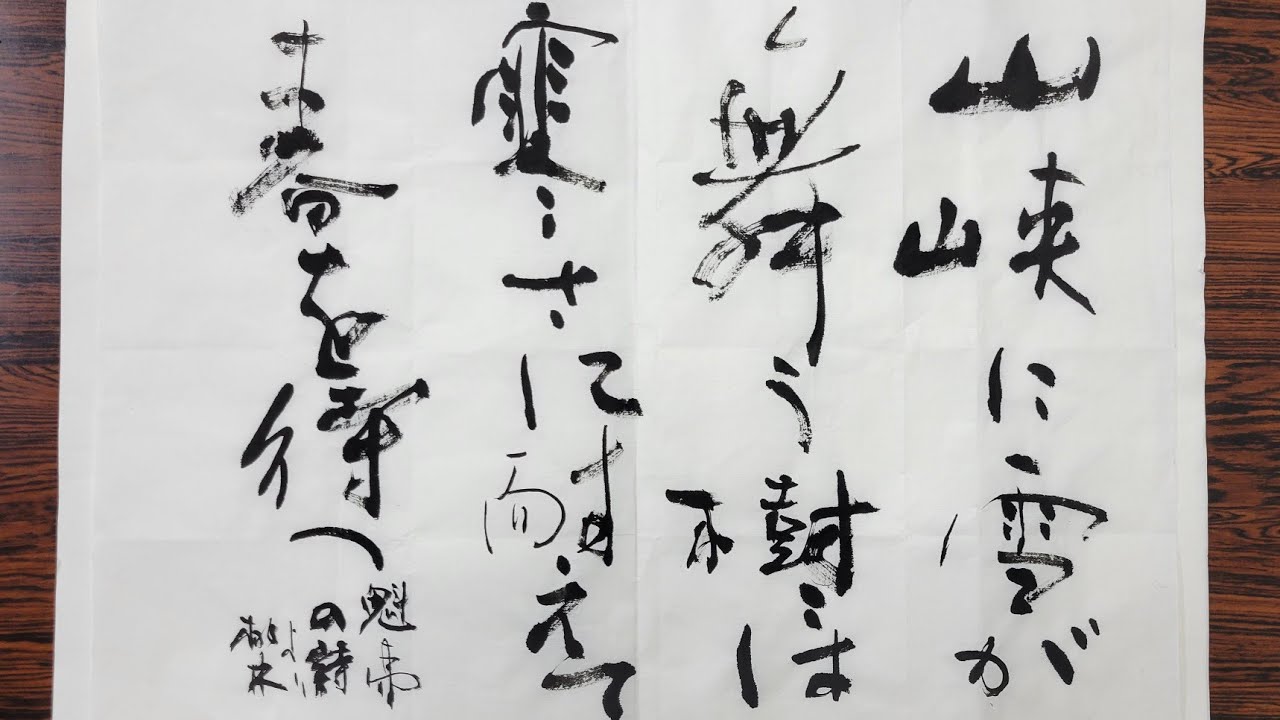 山峡に雪が
舞う樹は
寒さに耐えて
春を待つ
魁夷
の詩
より